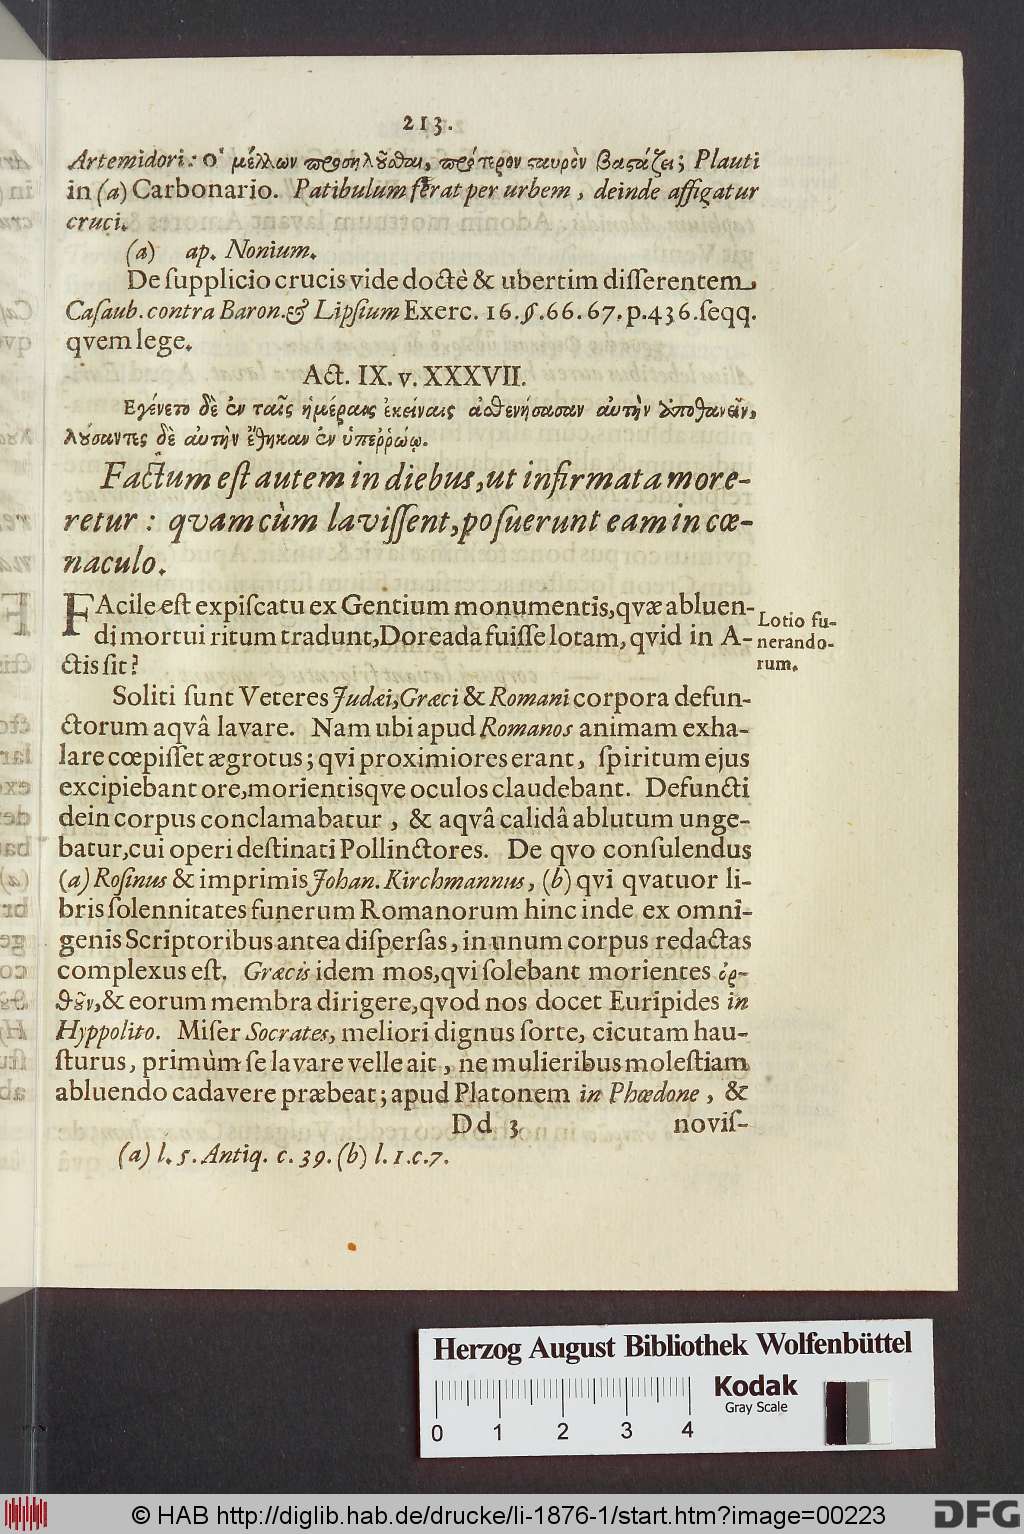 213.
Artemidori: Ὁ μέλλων προσηλοῦσθαι, πρότερον ςαυρὸν βαςάζει; Plauti
in (a) Carbonario. Patibulum ferat per urbem, deinde affigatur
cruci.
(a) ap. Nonium.
De ſupplicio crucis vide doctè & ubertim diſſerentem
Caſaub. contra Baron. & Lipſium Exerc. 16. §. 66. 67. p. 436. ſeqq.
qvem lege.
Act. IX. v. XXXVII.
Εγένετο δὲ ἐν ταῖς ἡμέραις ἐκείναις ἀσθενήσασαν αὐτὴν ἀποθανεῖν,
λούσαντες δὲ αὐτὴν ἔθηκαν ἐν ὑπερῤώῳ.
Factum eſt autem in diebus, ut infirmata more-
retur: qvam cùm laviſſent, poſuerunt eam in cœ-
naculo.
FAcile eſt expiſcatu ex Gentium monumentis, qvæ abluen-
di mortui ritum tradunt, Dorcada fuiſſe lotam, qvid in A-
ctis ſit?
Lotio fu-
nerando-
rum.
Soliti ſunt Veteres Judæi, Græci & Romani corpora defun-
ctorum aqvâ lavare. Nam ubi apud Romanos animam exha-
lare cœpiſſet ægrotus; qvi proximiores erant, ſpiritum ejus
excipiebant ore, morientisqve oculos claudebant. Defuncti
dein corpus conclamabatur, & aqvâ calidâ ablutum unge-
batur, cui operi deſtinati Pollinctores. De qvo conſulendus
(a) Roſinus & imprimis Johan. Kirchmannus, (b) qvi qvatuor li-
bris ſolennitates funerum Romanorum hinc inde ex omni-
genis Scriptoribus antea diſperſas, in unum corpus redactas
complexus eſt. Græcis idem mos, qvi ſolebant morientes ὀρ-
θοῦν, & eorum membra dirigere, qvod nos docet Euripides in
Hyppolito. Miſer Socrates, meliori dignus ſorte, cicutam hau-
ſturus, primùm ſe lavare velle ait, ne mulieribus moleſtiam
abluendo cadavere præbeat; apud Platonem in Phœdone, &
Dd 3 noviſ-
(a) l. 5. Antiq. c. 39. (b) l. 1. c. 7.
Herzog August Bibliothek Wolfenbüttel
Kodak
Gray Scale
0 1 2 3 4
© HAB http://diglib.hab.de/drucke/li-1876-1/start.htm?image=00223
DFG